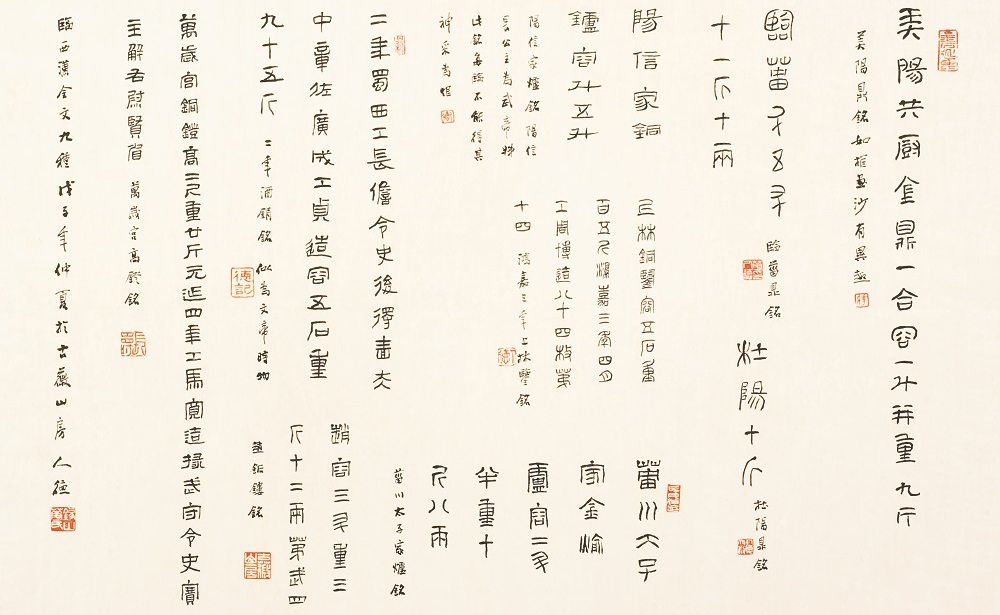 美陽共厨金鼎一合容一斗并重九斤
美陽鼎銘如錐畫沙有異趣
臨菑
十一斤十二兩
臨菑鼎銘
杜陽十斤
杜陽鼎銘
陽信家銅
鑪容斗五升
陽信家爐銘陽信
長公主為武帝姊
此銘每臨不能得其
神采為恨
上林銅鑒容五石重
百五斤鴻嘉三年四月
工周博造八十四枚第
十四
鴻嘉三年上林鑒銘
菑川太子
家金
盧容二
半重十
斤八兩
菑川太子家爐銘
二年蜀西工長儋令史後得嗇夫
中章佐廣成工貞造容五石重
九十五斤
二年酒銷銘似為文帝時物
容三斗重三
斤十二兩第
銘
萬歲宮銅鐙高二尺重廿斤元延四年工馬寬造掾武守令史寶
主解右尉賢省
萬歲宮高鐙銘
臨西漢金文九種戊子年仲夏於古薇山房人德
德記